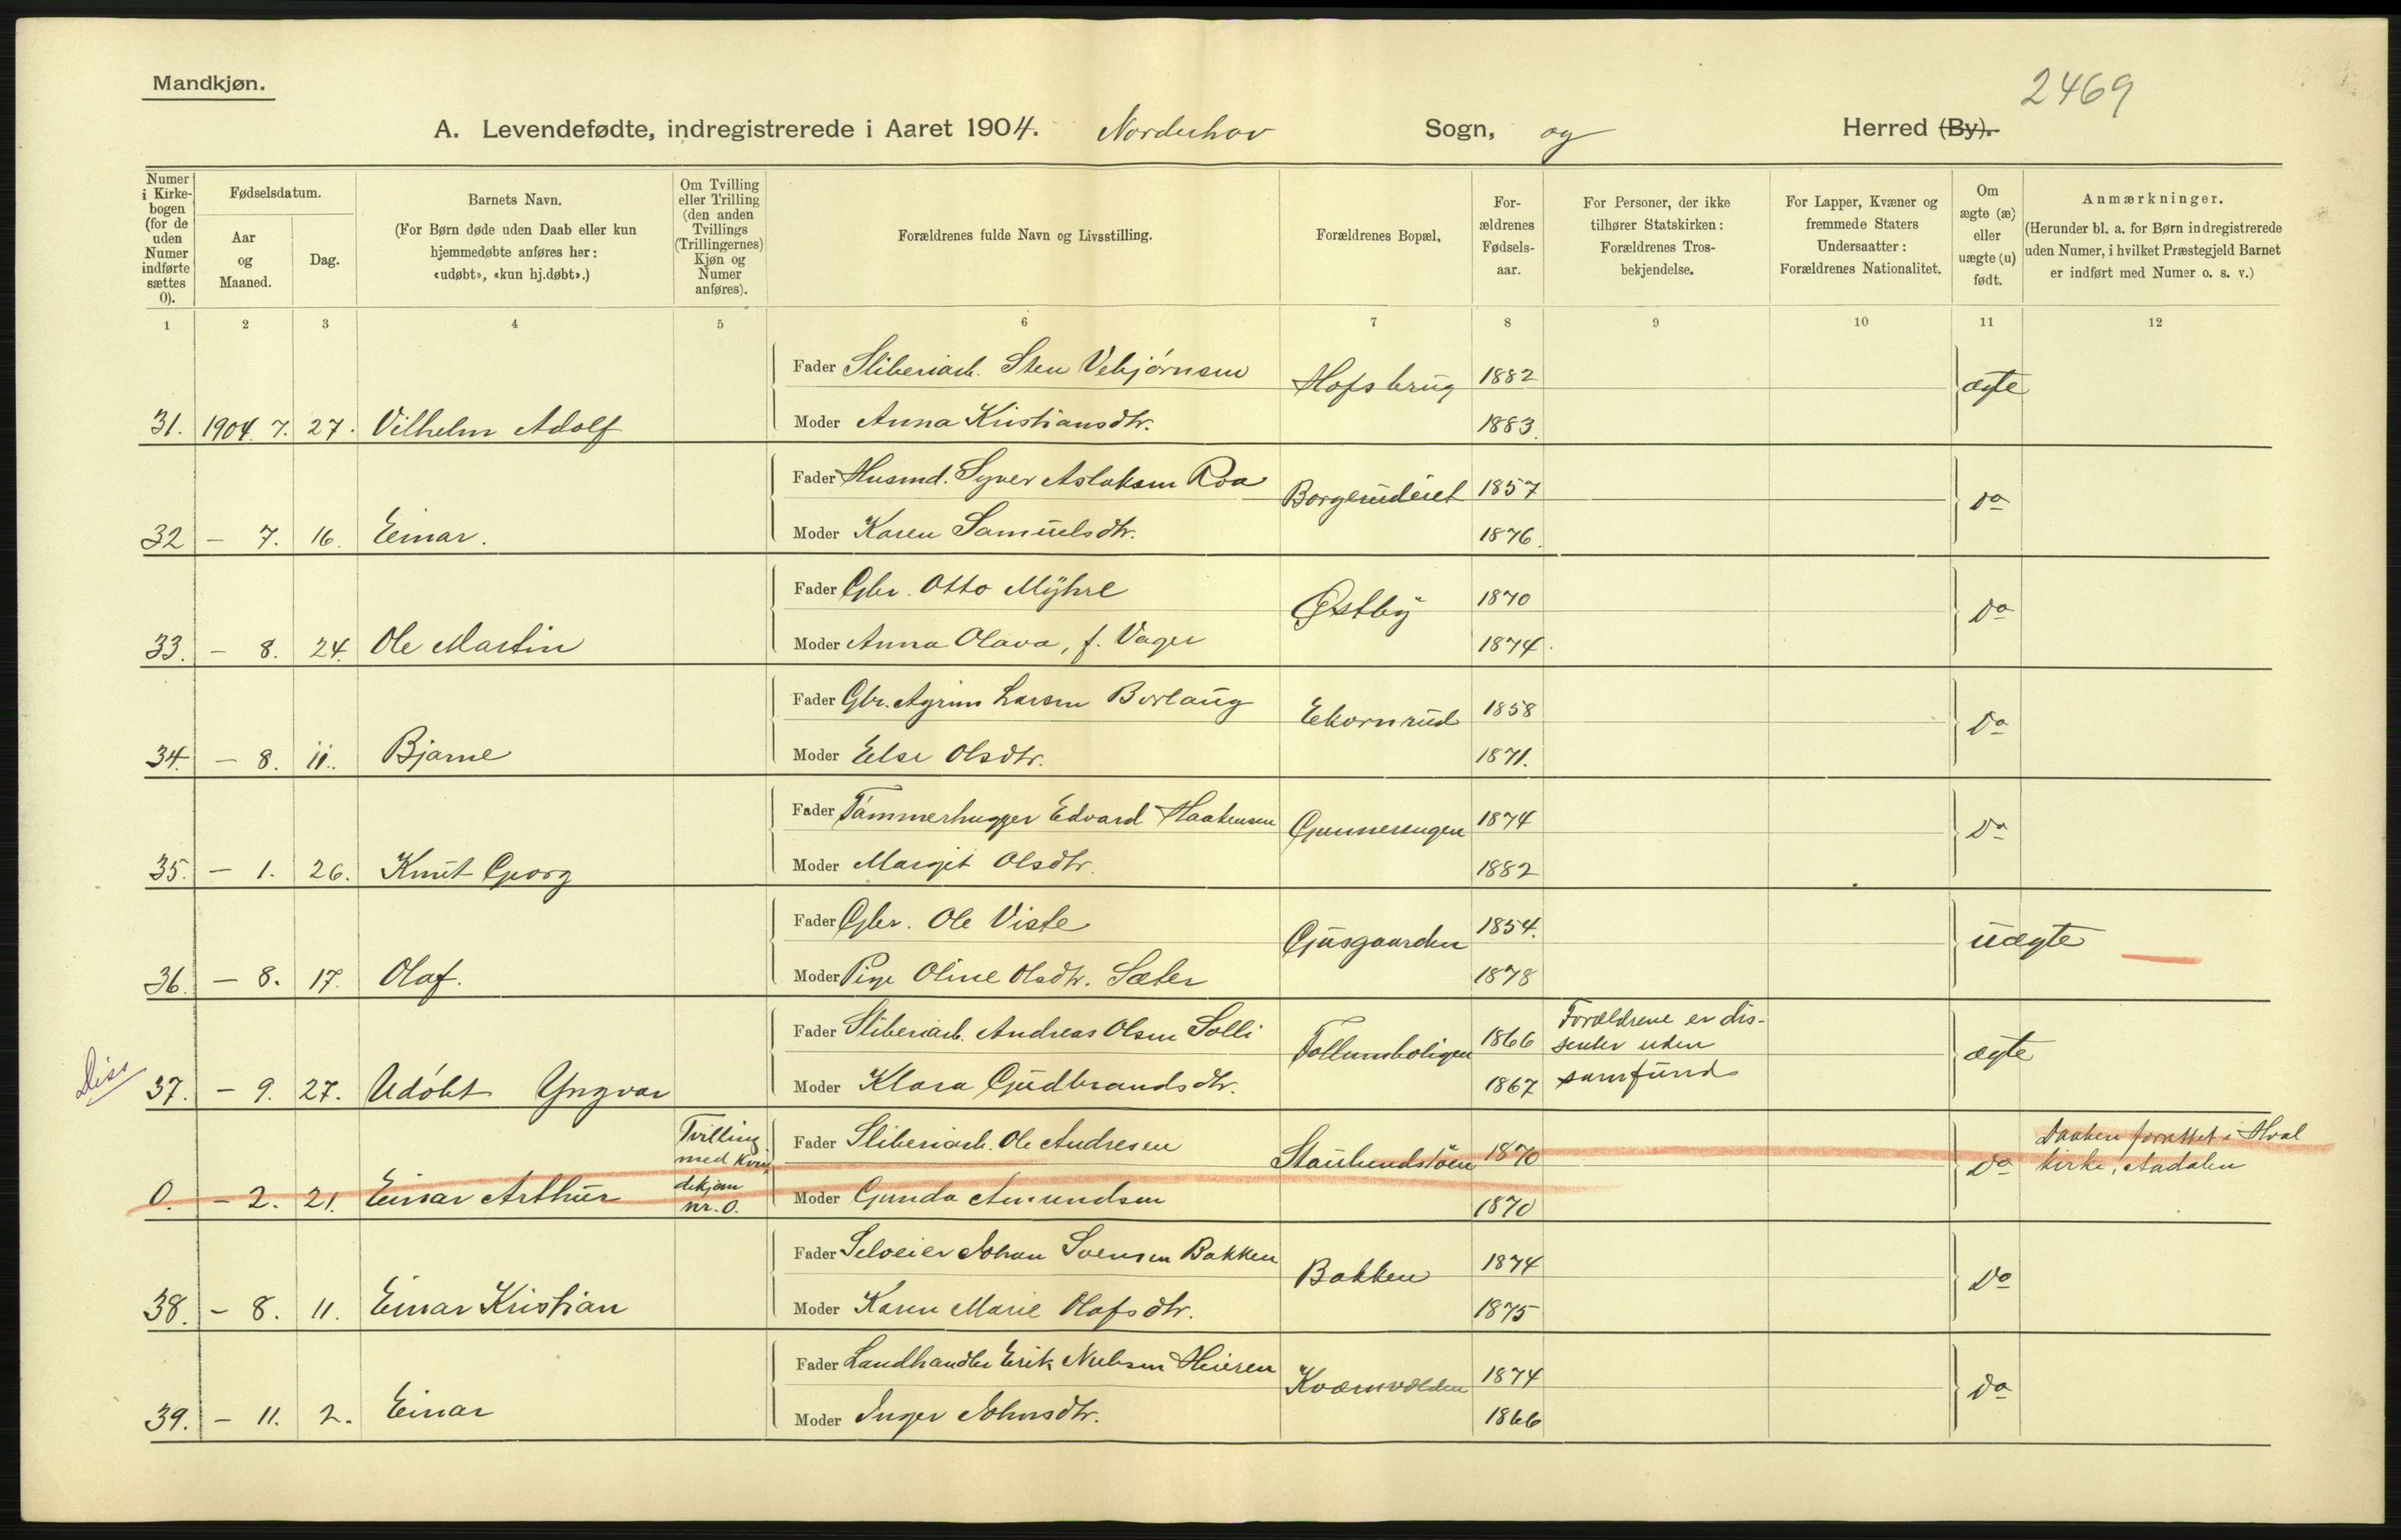 Mandkjøn.
2469
A. Levendefødte, indregistrerede i Aaret 1904. Norderhov Sogn, og Herred (By).
Numer i Kirkebogen (for de uden Numer indførte sættes 0).
Fødselsdatum.
Aar og Maaned.
Dag.
Barnets Navn.
(For Børn døde uden Daab eller kun hjemmedøbte anføres her: «udøbt», «kun hj.døbt».)
Om Tvilling eller Trilling (den anden Tvillings (Trillingernes) Kjøn og Numer anføres).
Forældrenes fulde Navn og Livsstilling.
Forældrenes Bopæl.
Forældrenes Fødselsaar.
For Personer, der ikke tilhører Statskirken: Forældrenes Trosbekjendelse.
For Lapper, Kvæner og fremmede Staters Undersaatter: Forældrenes Nationalitet.
Om ægte (æ) eller uægte (u) født.
Anmærkninger.
(Herunder bl. a. for Børn indregistrerede uden Numer, i hvilket Præstegjeld Barnet er indført med Numer o. s. v.)
1 2 3 4 5 6 7 8 9 10 11 12
Fader Sliberiarb. Sten Vebjørnsen Hofsbrug 1882 ægte
31. 1904. 7. 27. Vilhelm Adolf Moder Anna Kristiansdtr. 1883.
Fader Husmd. Syver Aslaksen Roa Borgerudeiet 1857 do
32 - 7. 16. Einar. Moder Karen Samuelsdtr. 1876.
Fader Gbr. Otto Myhre Østby 1870 do
33. - 8. 24. Ole Martin Moder Anna Olava, f. Vager 1874.
Fader Gbr. Agrim Larsen Borlaug Ekornrud 1858 do
34. - 8. 11. Bjarne Moder Else Olsdtr. 1871.
Fader Tømmerhugger Edvard Haakensen Gunnersengen 1874 do
35. - 1. 26. Knut Georg Moder Margit Olsdtr. 1882
Fader Gbr. Ole Viste Gjusgaarden 1854. uægte
36. - 8. 17. Olaf. Moder Pige Oline Olsdtr. Sæter 1878
Fader Sliberiarb. Andreas Olsen Solli Follumboligen 1866 Forældrene er dissenter uden samfund ægte
Diss 37. - 9. 27. Udøbt Yngvar Moder Klara Gudbrandsdtr. 1867
Tvilling med Kvindekjøn nr. 0. Fader Sliberiarb. Ole Andresen 1870 do Daaben forrettet i Hval kirke, Aadalen
0. - 2. 21. Einar Arthur Moder Gunda Amundsen 1870
Fader Selveier Johan Svensen Bakken Bakken 1874 do
38. - 8. 11. Einar Kristian Moder Karen Marie Olafsdtr. 1875
Fader Landhandler Erik Nielsen Heieren Kværnvolden 1874 do
39. - 11. 2. Einar Moder Inger Johnsdtr. 1866